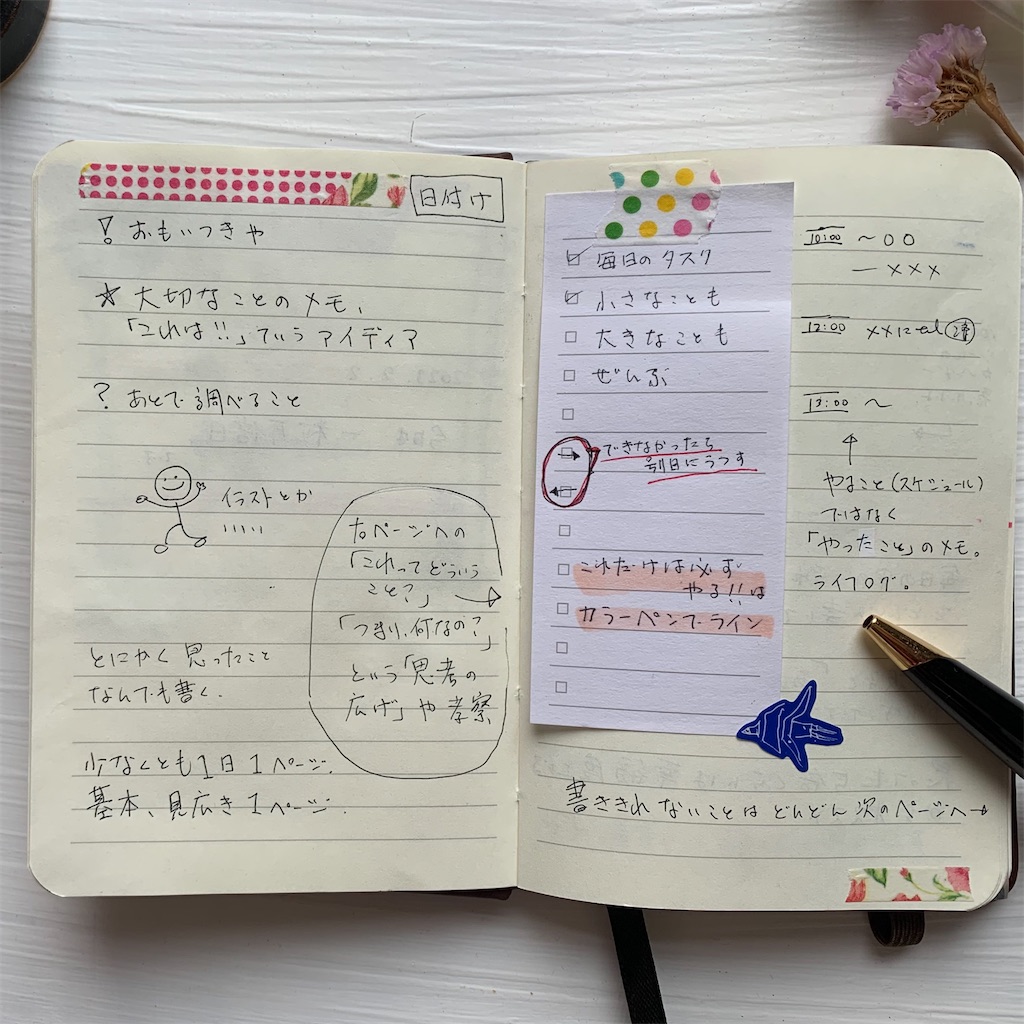 日付け
! おもいつきや
☆ 大切なことのメモ、
「これは!!」ていうアイディア
? あとで調べること
イラストとか
とにかく思ったこと
なんでも書く.
少なくとも1日1ページ.
基本、見広き1ページ.
右ページへの
「これってどういう
こと?」
「つまり、何なの?」
という「思考の
広げ」や考察
毎日のタスク
小さなことも
大きなことも
ぜんぶ
できなかったら
別日にうつす
これだけは必ず
やる!!は
カラーペンでライン
10:00 〜○○
ー×××
12:00 ××にtel
13:00 〜
やること(スケジュール)
ではなく
「やったこと」のメモ。
ライフログ。
書ききれないことはどんどん次のページへ→